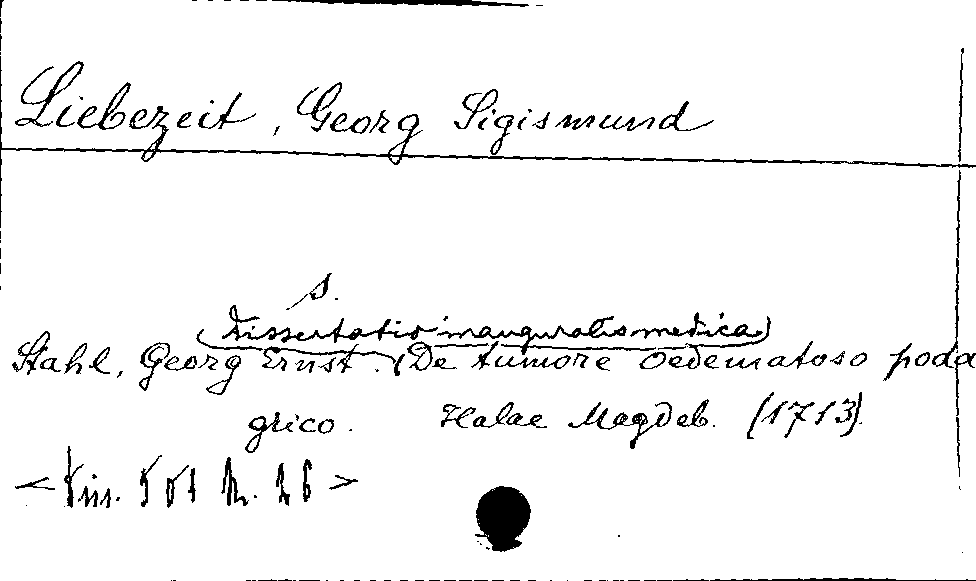 Liebezeit, Georg Sigismund
s.
(Dissertatio inauguralis medica)
Stahl, Georg Ernst. De tumore oedematoso poda
grico. Halae Magdeb. (1713).
<Diss. 501 N. 26>